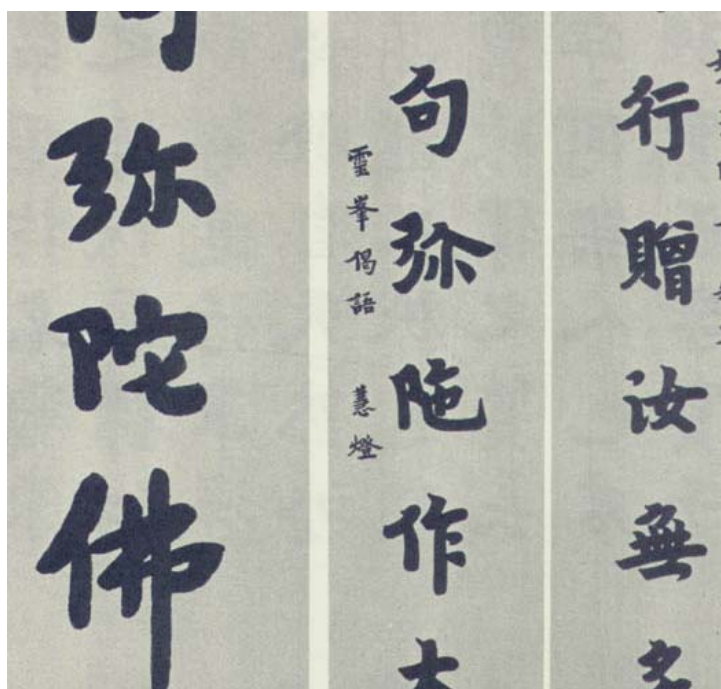 行贈汝無
句弥陁作大
靈峯偈語 慧燈
阿弥陀佛